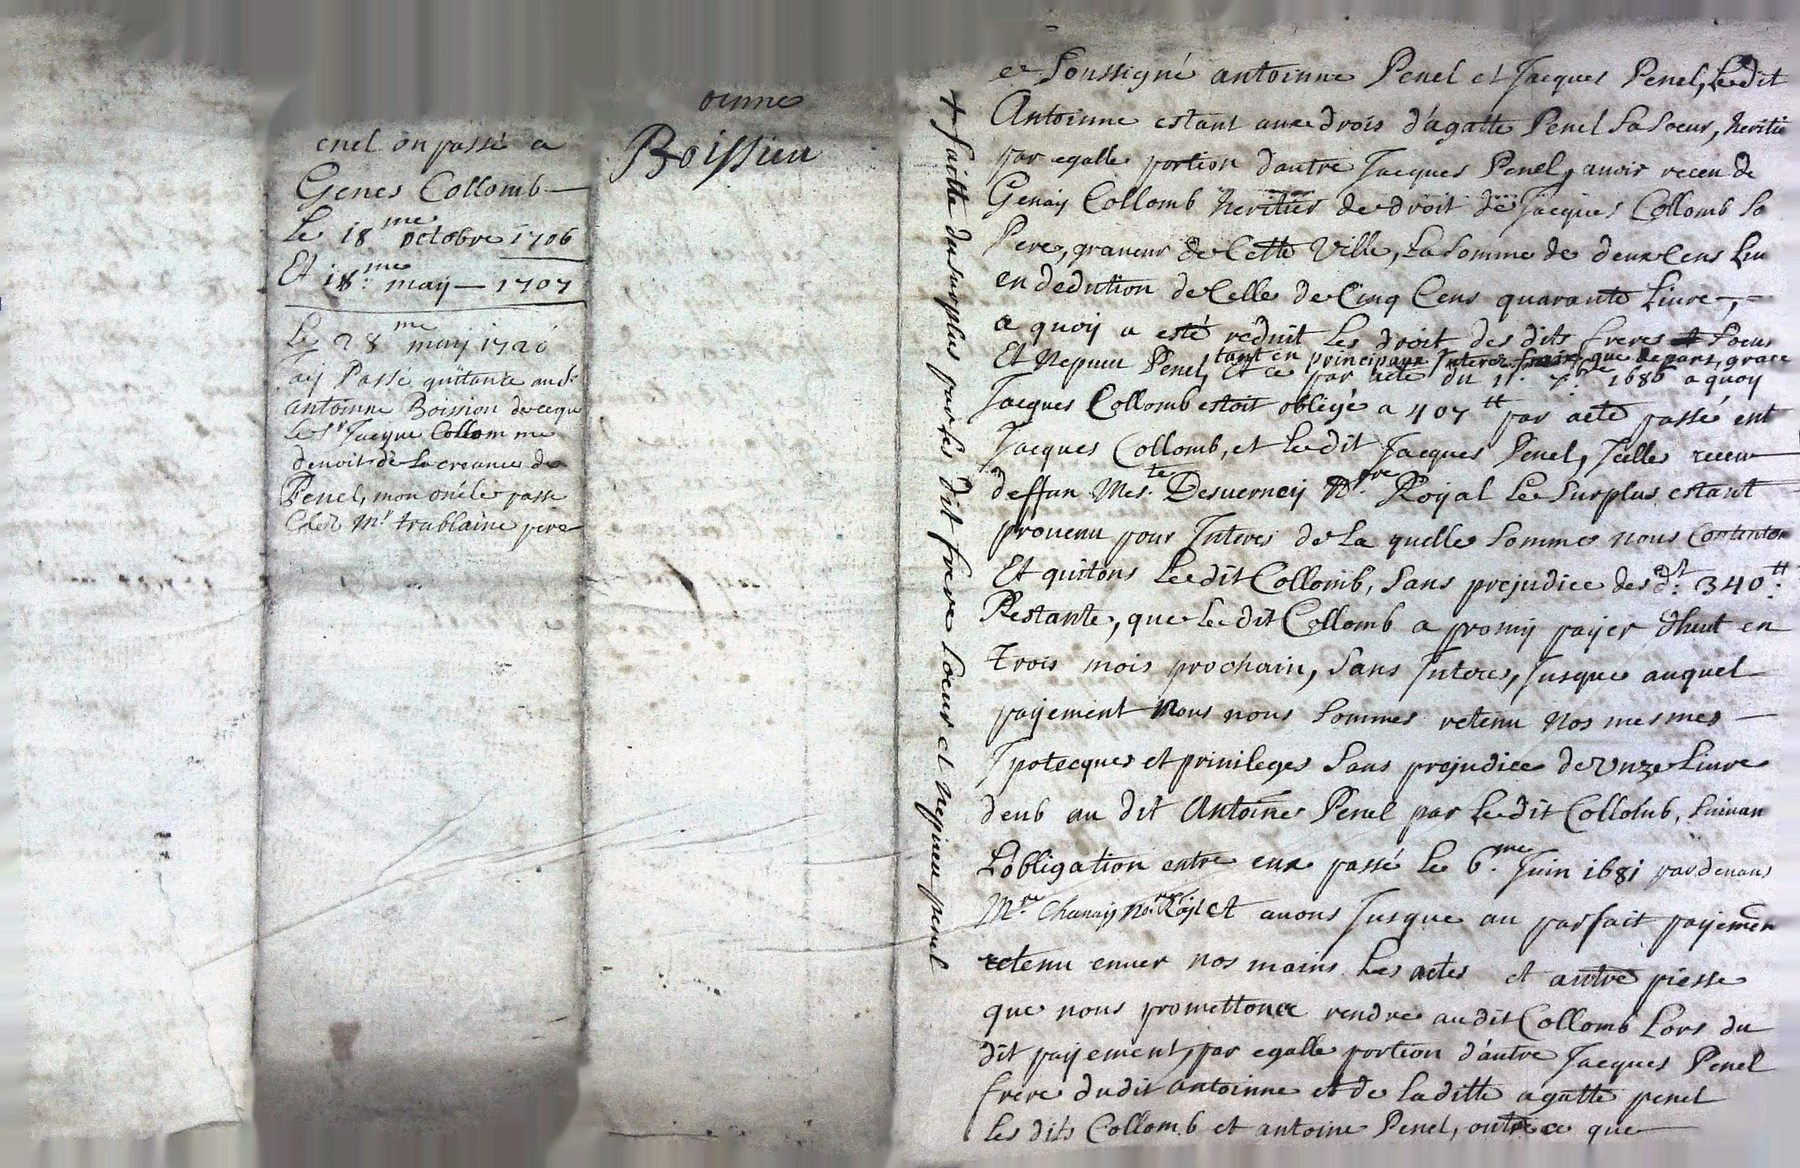 enel on passé a
Genes Collomb
Le 18me octobre 1706
Et 18me may 1707
Le 28me may 1720
ay Passé quitance au dt
antoinne Boission de ce que
le Sr Jacque Collomme
devoit de la creance de
Penel, mon oncle passé
Chez Mr trablaine pere
oinne
Boissieu
+ faitte du surplus par les dit frere soeur et nepueu penel
et soussigné antoinne Penel et Jacques Penel, Ledit
Antoinne estant aux drois d'agatte Penel sa soeur, heritie
par egalle portion d'autre Jacques Penel, avoir receu de
Genay Collomb heritier de droit de Jacques Collomb so
Pere, graveur de Cette Ville, La somme de deux Cens Liu
en dedution de Celle de Cinq Cens quarante Liure,
a quoy a esté reduit Les droit des dits freres et soeur
Et Nepueu Penel, tant en principaux Interes que depans, grace
et ce par acte du 11. 7bre 1686 a quoy
Jacques Collomb estoit obligé a 407 tt par acte passé ent
Jacques Collomb, et Ledit Jacques Penel, Icelle receu
deffun Mes.te Desverney Nre Royal Le surplus estant
provenu pour Interes de La quelle sommes nous Contenton
Et quitons Ledit Collomb, sans prejudice des dt. 340 tt
Restante, que Le dit Collomb a promy payer d'huit en
trois mois prochain, sans Interes, Jusque auquel
payement Nous nous sommes retenu Nos mesmes
Ipotecques et privileges sans prejudice de Unze Liure
deub au dit Antoine Penel par Ledit Collomb, suivan
L'obligation entre eux passé Le 6me Juin 1681 par devans
Mre Chanay Nore Royl et avons Jusque au parfait payemen
retenu enver nos mains Les actes et autre piesse
que nous promettons rendre audit Collomb Lors du
dit payement, par egalle portion d'autre Jacques Penel
frere dudit antoinne et de Laditte agatte penel
Les dits Collomb et antoine Penel, outre ce que